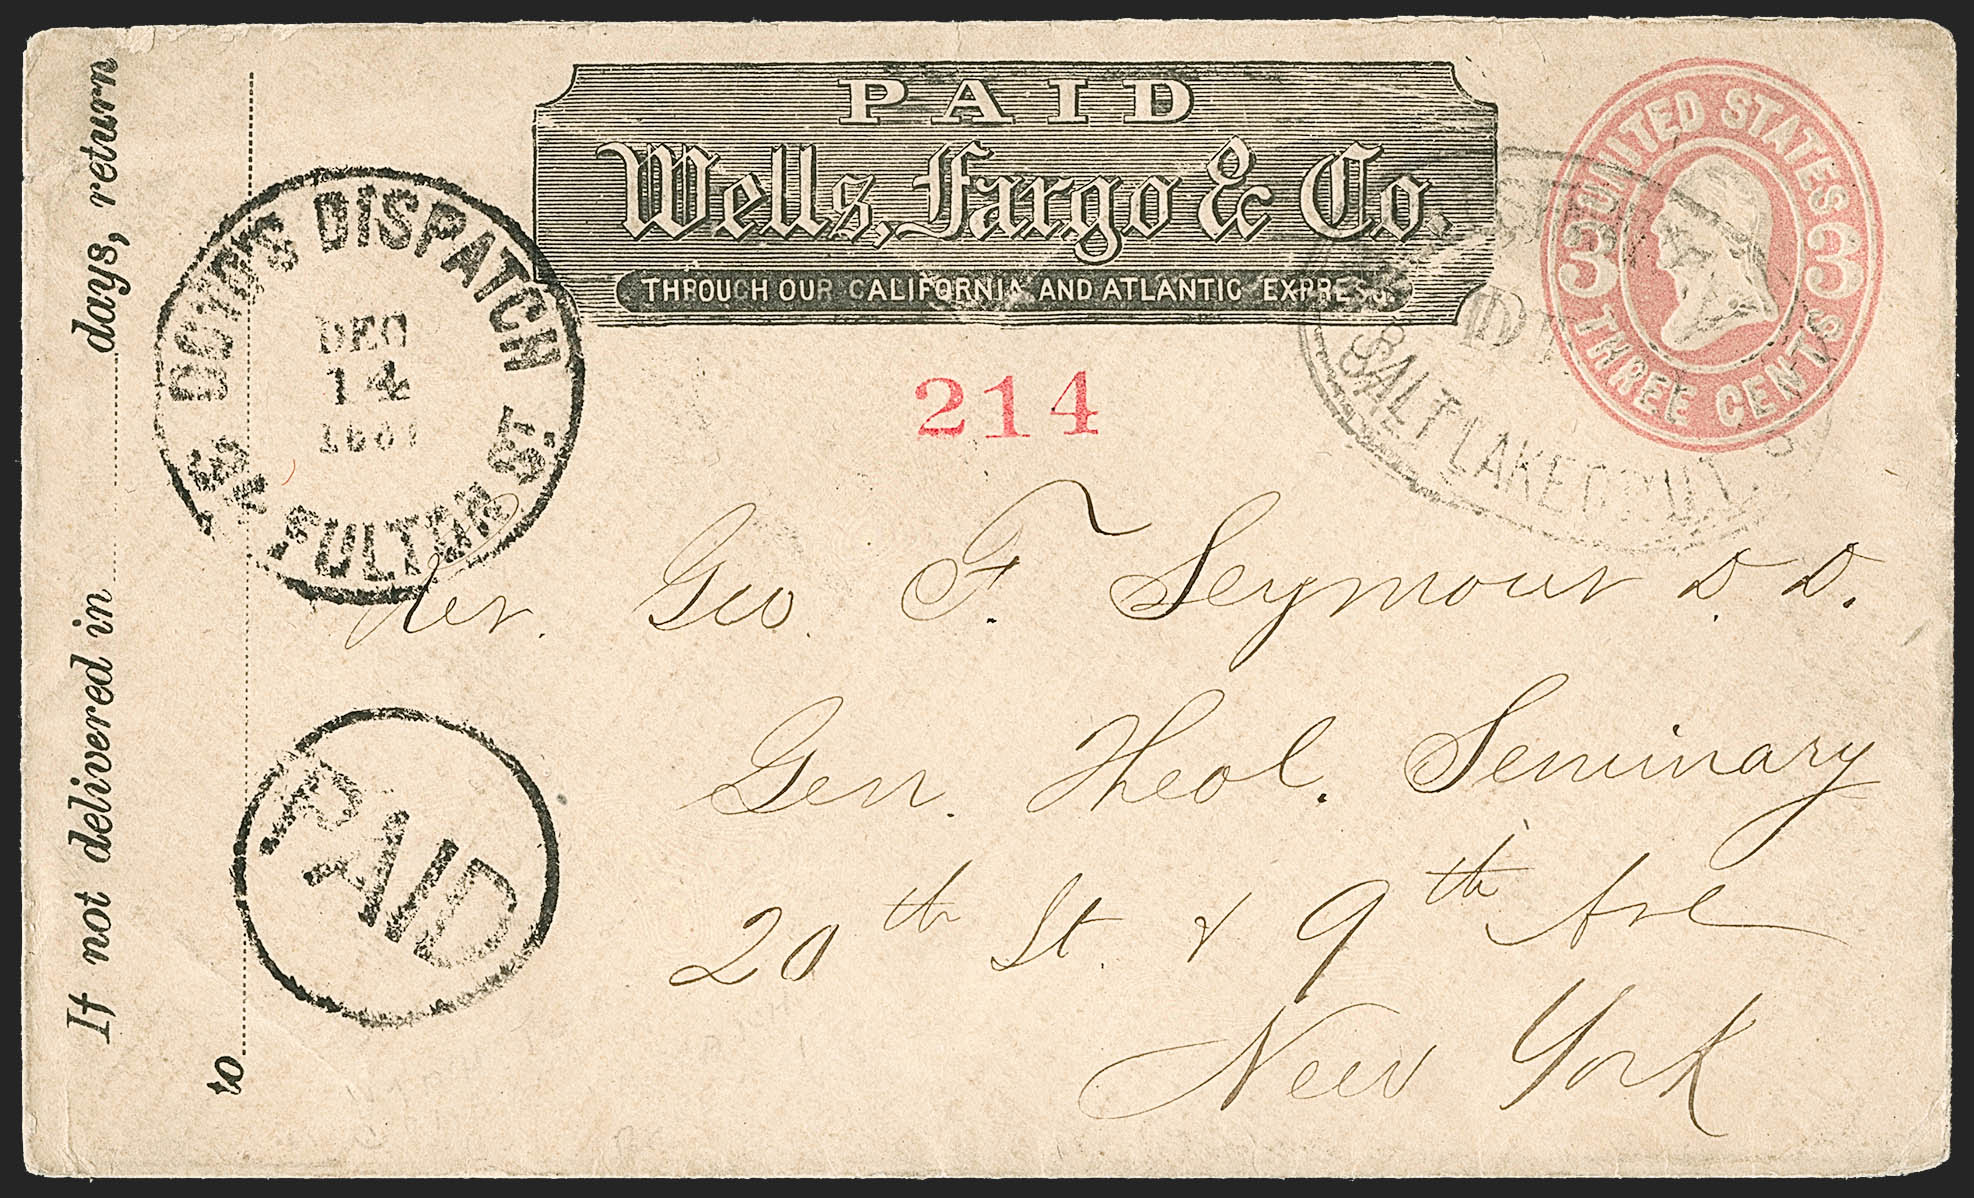 If not delivered in days, return
to
PAID
Wells, Fargo & Co.
THROUGH OUR CALIFORNIA AND ATLANTIC EXPRESS.
UNITED STATES
3 3
THREE CENTS
SALT LAKE
214
DISPATCH
DEC
14
FULTON ST.
PAID
Rev. Geo. F. Seymour D. D.
Gen. Theol. Seminary
20th St. & 9th Ave
New York